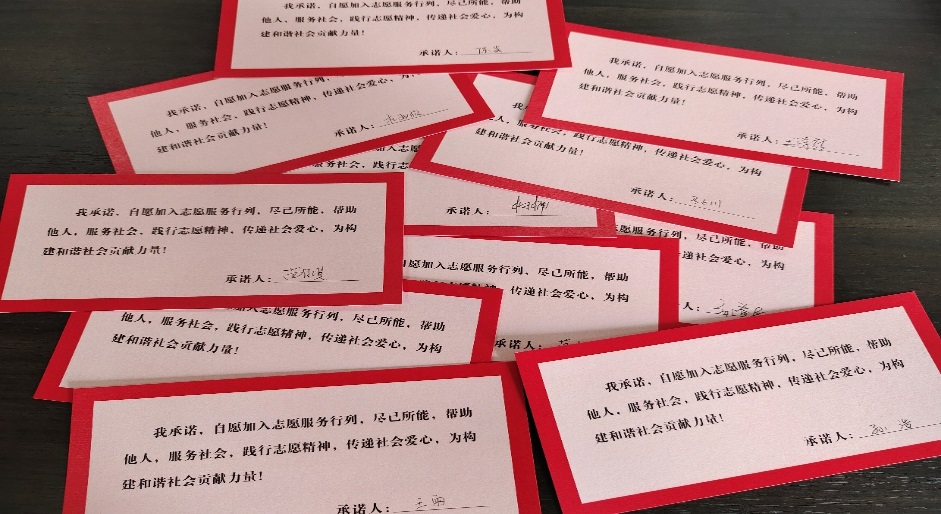 我承诺，自愿加入志愿服务行列，尽己所能，帮助
他人，服务社会，践行志愿精神，传递社会爱心，为构
建和谐社会贡献力量！
承诺人：
我承诺，自愿加入志愿服务行列，尽己所能，帮助
他人，服务社会，践行志愿精神，传递社会爱心，为构
建和谐社会贡献力量！
承诺人：
我承诺，自愿加入志愿服务行列，
他人，服务社会，践行志愿精神，传递社会爱心，为
建和谐社会贡献力量！
承诺人：
我
他人，服务社会，践行志愿精神，传递社会爱心，为构
建和谐社会贡献力量！
承诺人：
志愿服务行列，尽己
践行志
承诺人：
我承诺，自愿加入志愿服务行列，尽己所能，帮助
他人，服务社会，践行志愿精神，传递社会爱心，为构
建和谐社会贡献力量！
承诺人：
愿加入志愿服务行列，尽己所能，帮助
传递社会爱心，为构
承诺人：
尽己所能，帮助
会爱心，为构
人：
他人，服务社会，践行志愿精神，传递社会爱心，为构
建和谐社会贡献力量！
我承诺，自愿加入志愿服务行列，尽己所能，帮助
他人，服务社会，践行志愿精神，传递社会爱心，为构
建和谐社会贡献力量！
承诺人：
我承诺，自愿加入志愿服务行列，尽己所能，帮助
他人，服务社会，践行志愿精神，传递社会爱心，为构
建和谐社会贡献力量！
承诺人：王雨